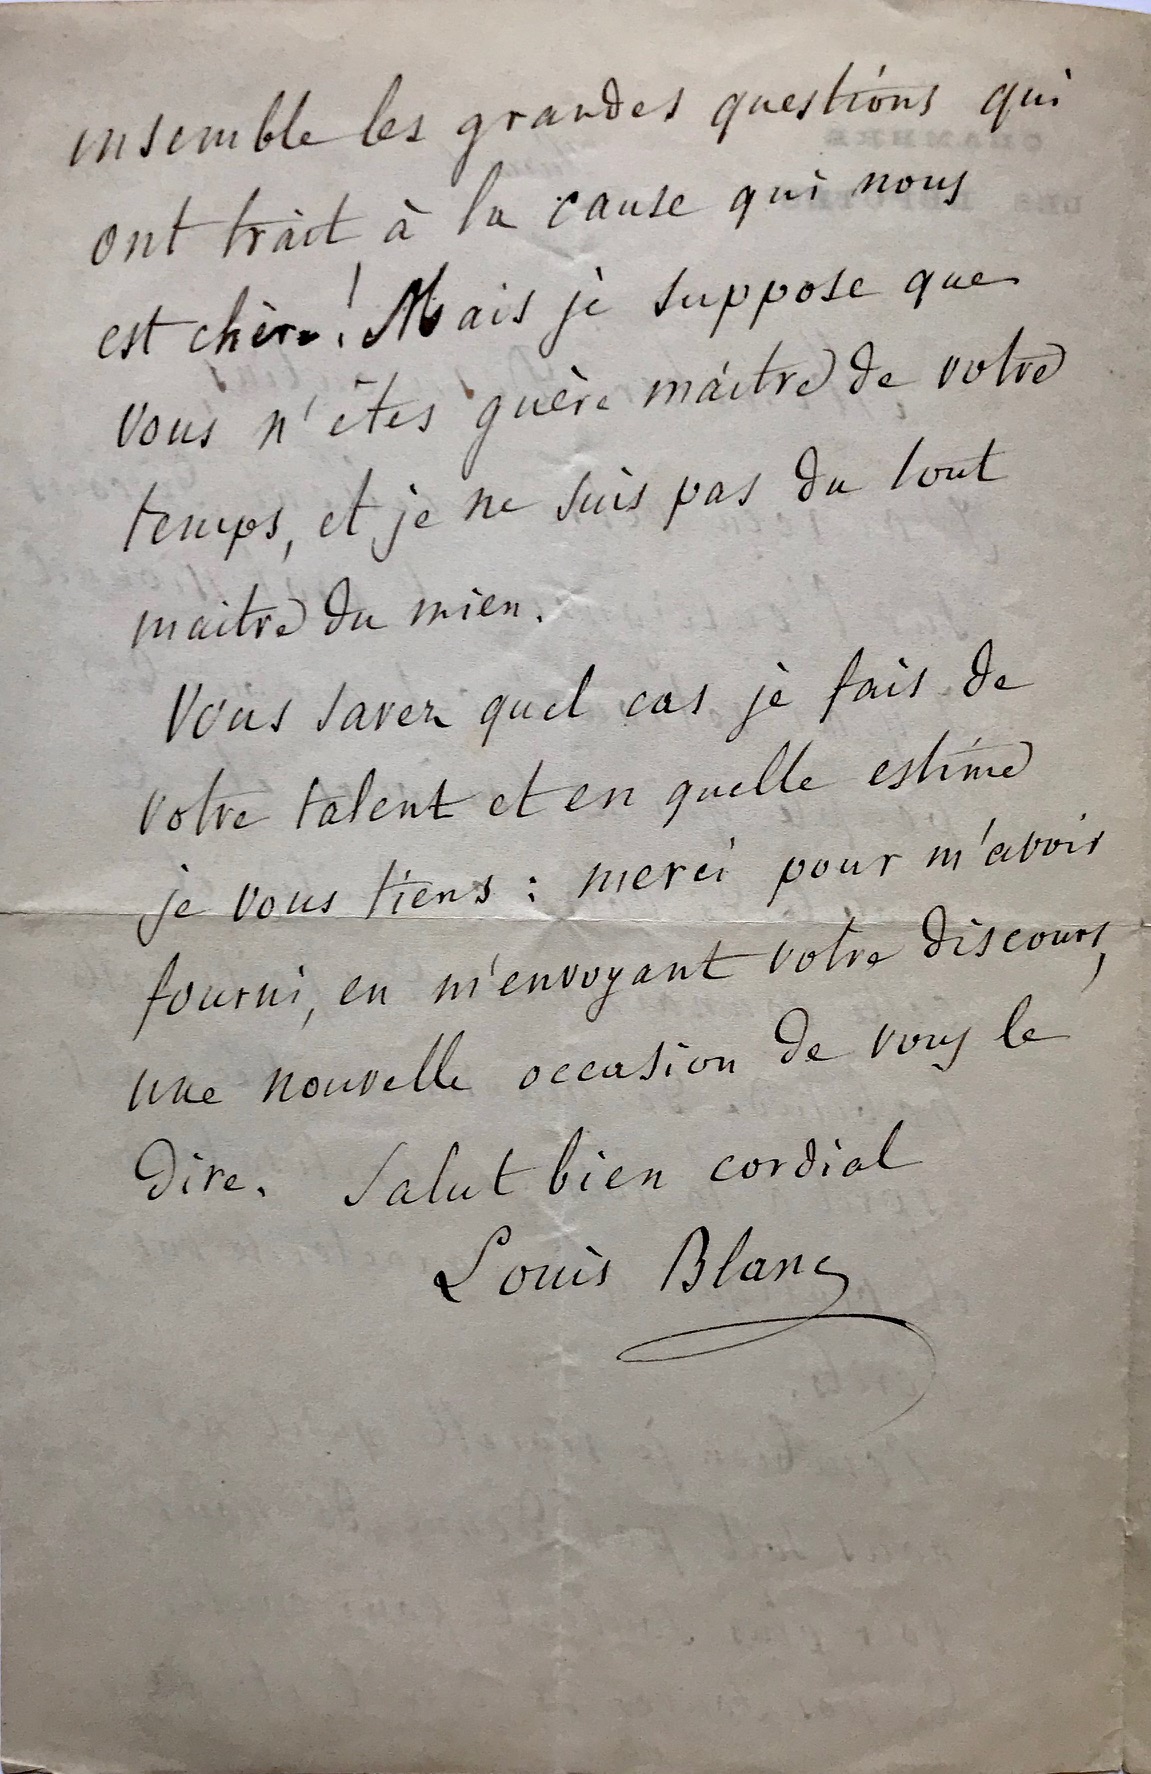 ensemble les grandes questions qui
ont trait à la cause qui nous
est chère! Mais je suppose que
vous n'êtes guère maître de votre
temps, et je ne suis pas du tout
maitre du mien.
Vous savez quel cas je fais de
votre talent et en quelle estime
je vous tiens : merci pour m'avoir
fourni, en m'envoyant votre discours,
une nouvelle occasion de vous le
dire. Salut bien cordial
Louis Blanc